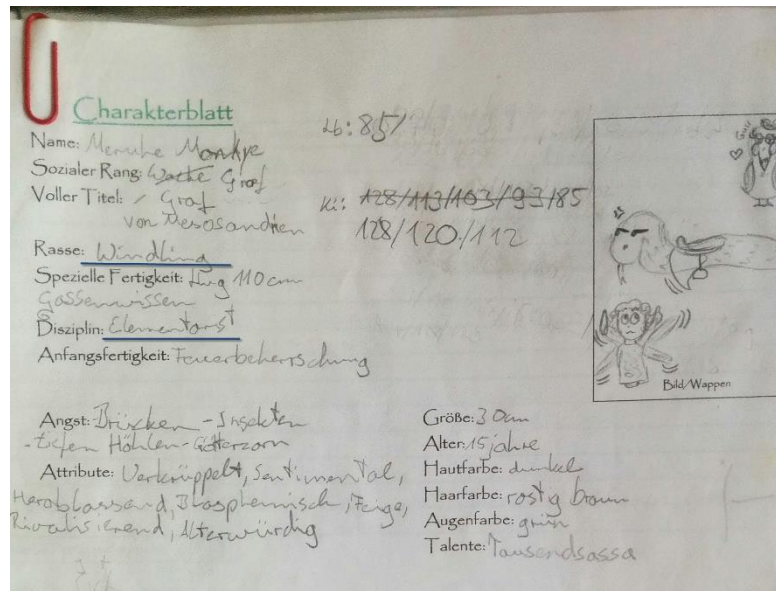 Charakterblatt
Lb: 85/
Name: Meruhe Monkye
Sozialer Rang: Woche Graf
Voller Titel: / Graf
von Mesosandrien
Ki: 128/113/103/93/85
128/120/112
Rasse: Windling
Spezielle Fertigkeit: Flug 110 cm
Gassenwissen
Disziplin: Elementarist
Anfangsfertigkeit: Feuerbeherrschung
Bild/Wappen
Angst: Brücken - Insekten
- tiefen Höhlen - Götterzorn
Attribute: Verkrüppelt, Sentimental,
Herablassend, Blasphemisch, Feige,
Rivalisierend, Alterwürdig
Größe: 30cm
Alter: 15 jahre
Hautfarbe: dunkel
Haarfarbe: rostig braun
Augenfarbe: grün
Talente: Tausendsassa